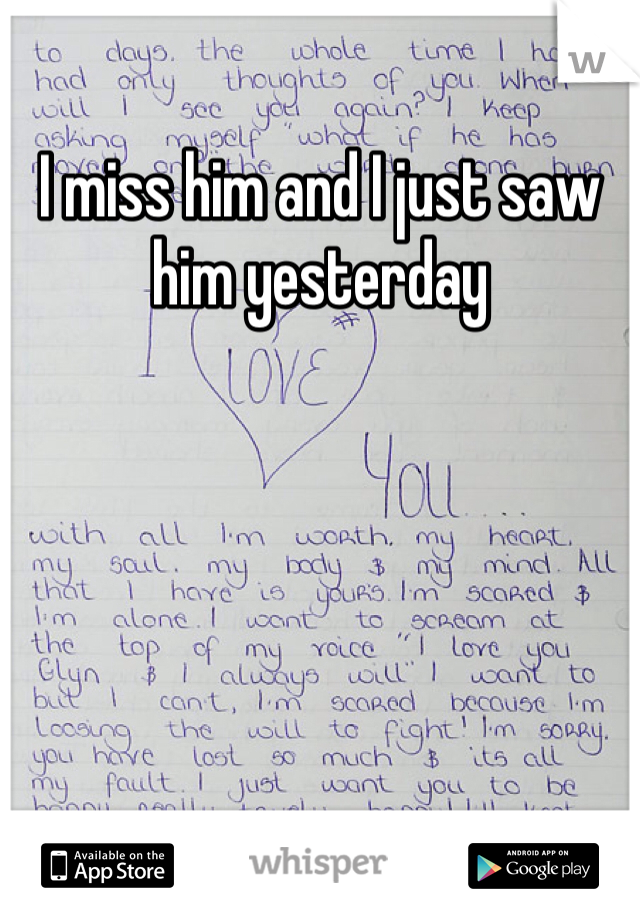 w
to days. the whole time I
had only thoughts of you. When
will I see you again? I keep
asking myself "what if he has
I miss him and I just saw
him yesterday
I LOVE
You....
with all I.m worth. my heart.
my soul. my body & my mind. All
that I have is yours. I.m scared &
I.m alone. I want to scream at
the top of my voice "I love you
Glyn & I always will" I want to
but I can't, I.m scared because I.m
loosing the will to fight! I.m sorry.
you have lost so much & its all
my fault. I just want you to be
Available on the
App Store
whisper
ANDROID APP ON
Google play